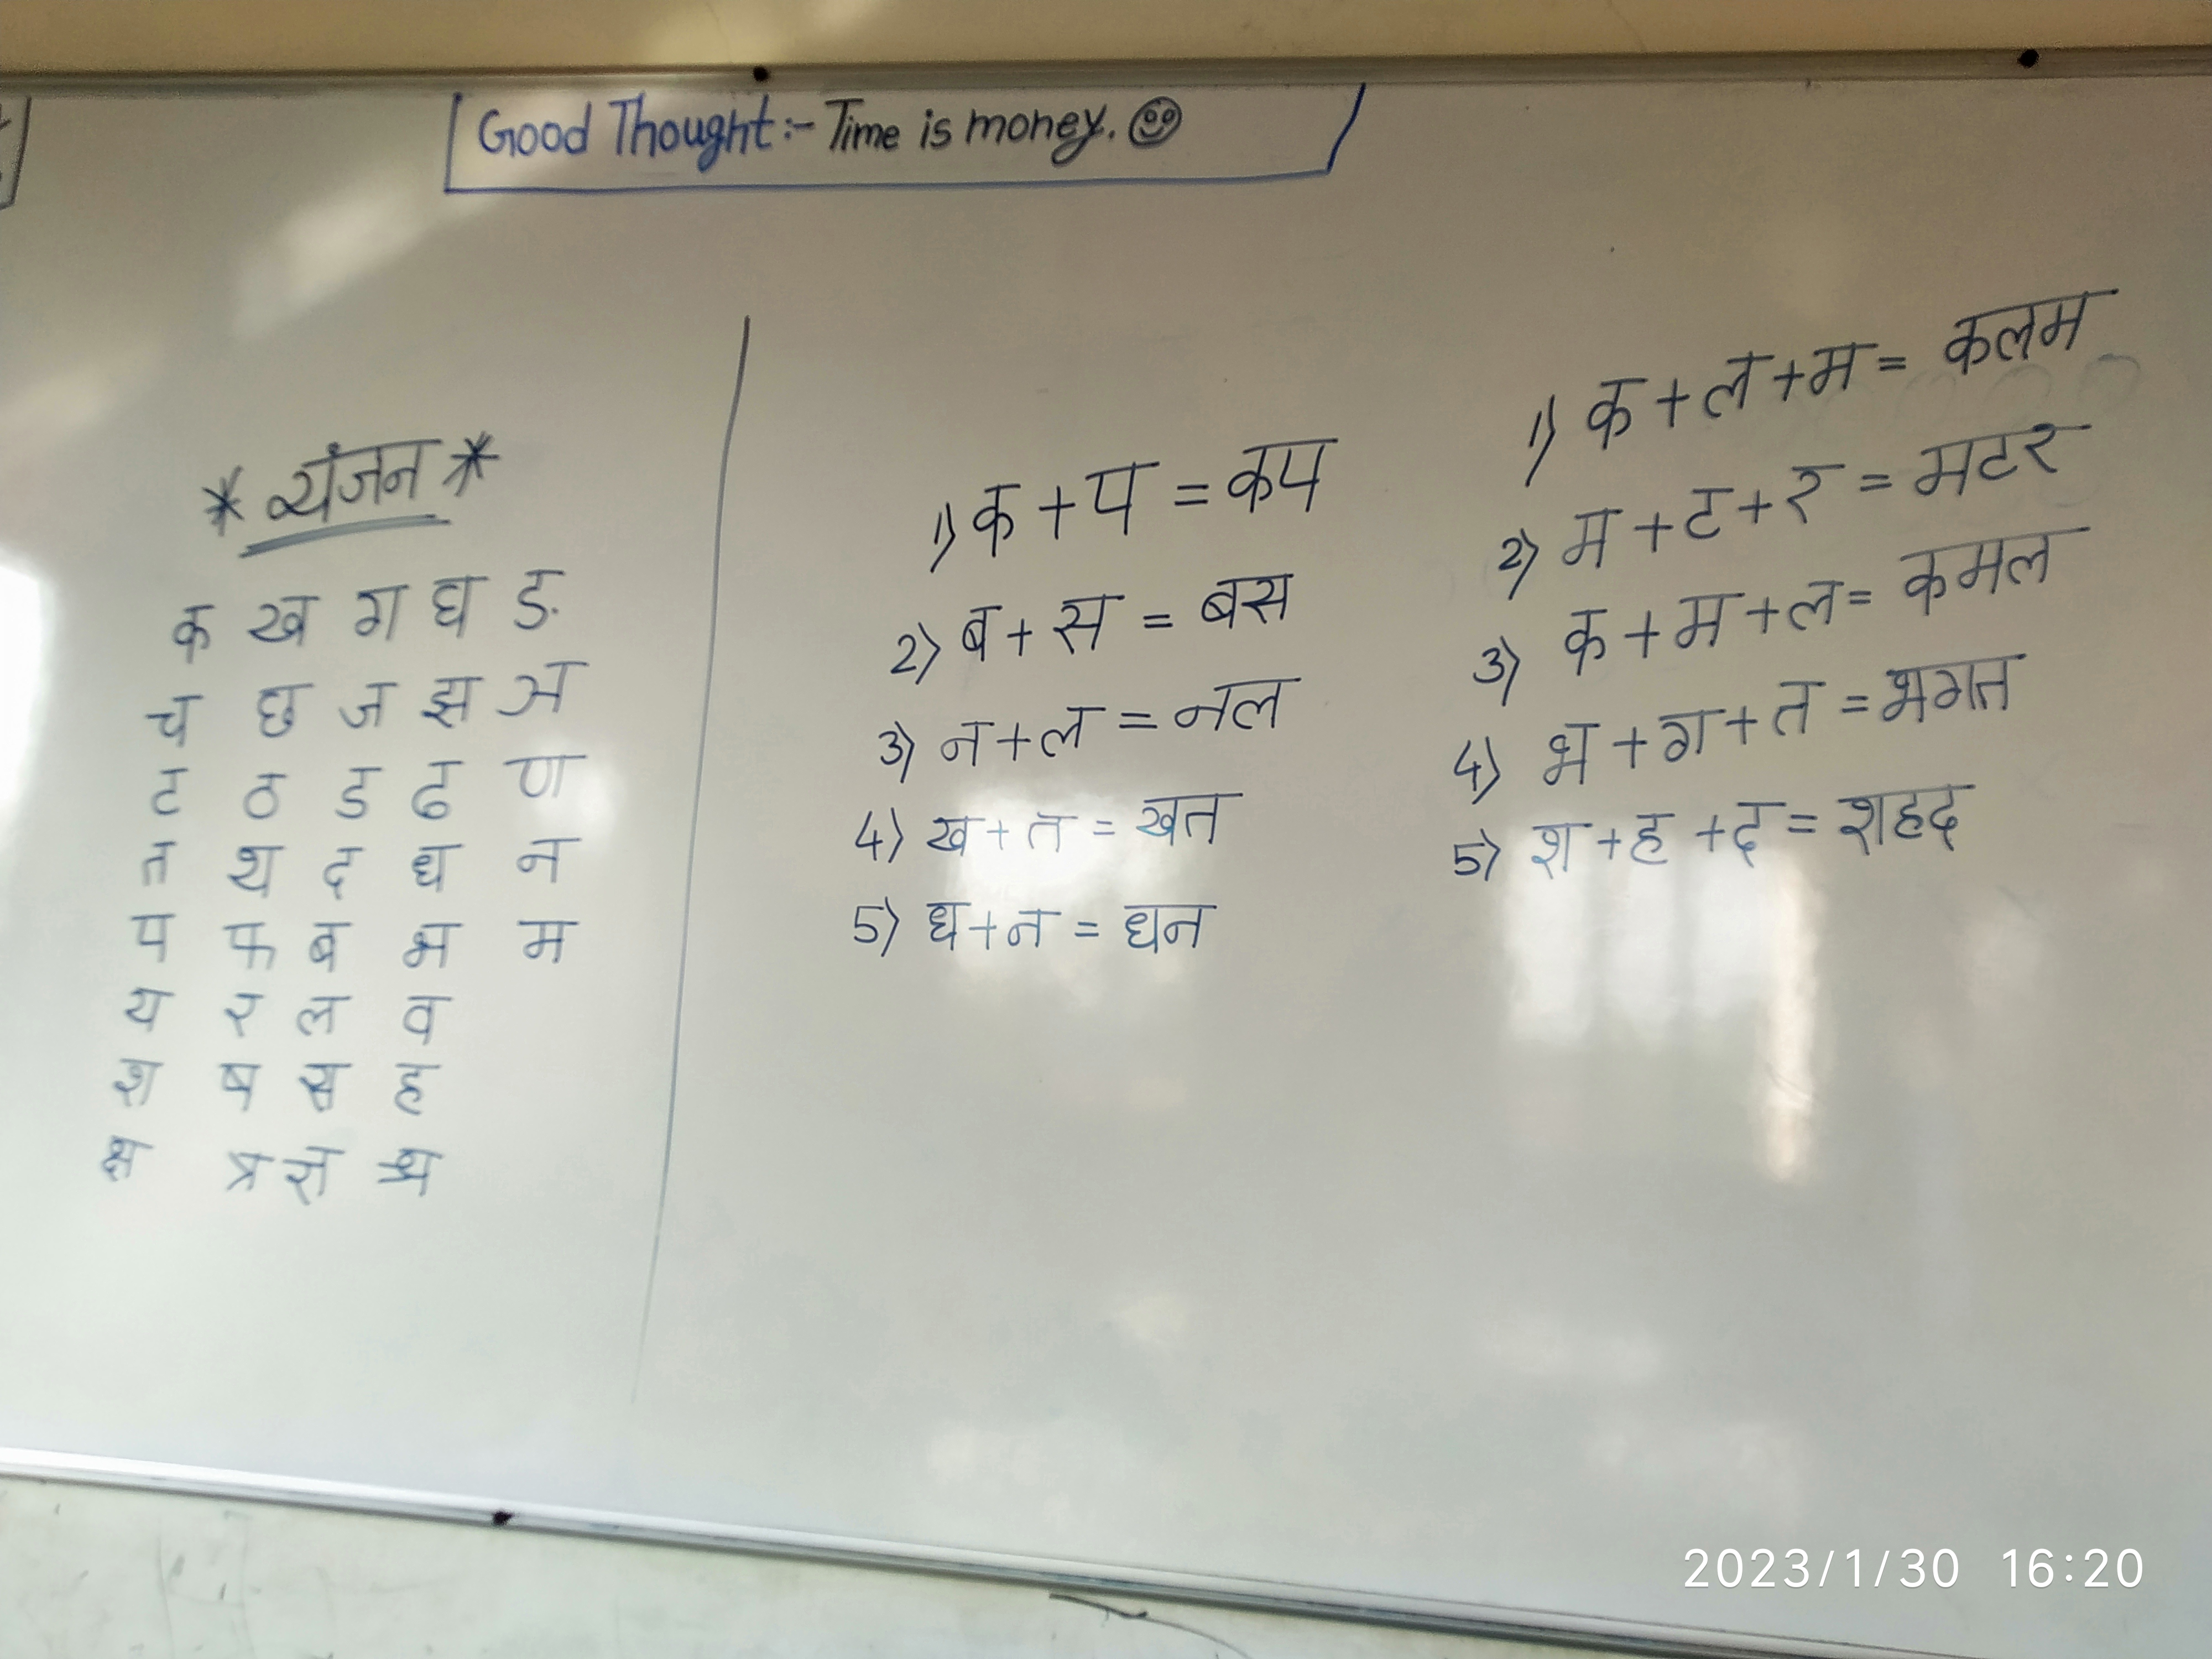 Good Thought:- Time is money. ☺
* व्यंजन *
क ख ग घ ङ
च छ ज झ ञ
ट ठ ड ढ ण
त थ द ध न
प फ ब भ म
य र ल व
श ष स ह
क्ष त्र ज्ञ श्र
1) क + प = कप
2) ब + स = बस
3) न + ल = नल
4) ख + त = खत
5) ध + न = धन
1) क + ल + म = कलम
2) म + ट + र = मटर
3) क + म + ल = कमल
4) भ + ग + त = भगत
5) श + ह + द = शहद
2023/1/30 16:20